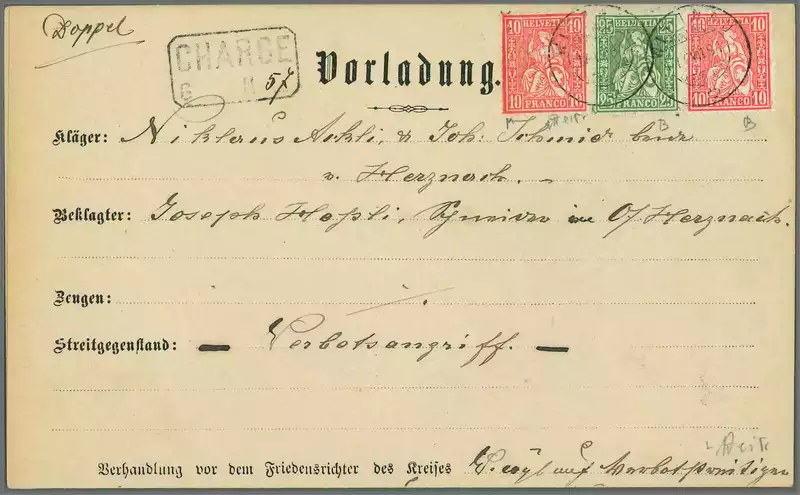 Doppel
CHARGE
G II 57
Vorladung.
10 HELVETIA 10
10 FRANCO 10
25 HELVETIA 25
25 FRANCO 25
10 HELVETIA 10
10 FRANCO 10
B
B
Kläger: Niklaus Ackli, & Joh. Schmid beide
v. Herznach. –
Beklagter: Joseph Hossli, in O/Herznach.
Zeugen:
Streitgegenstand: — Verbotsangriff. —
Verhandlung vor dem Friedensrichter des Kreises auf